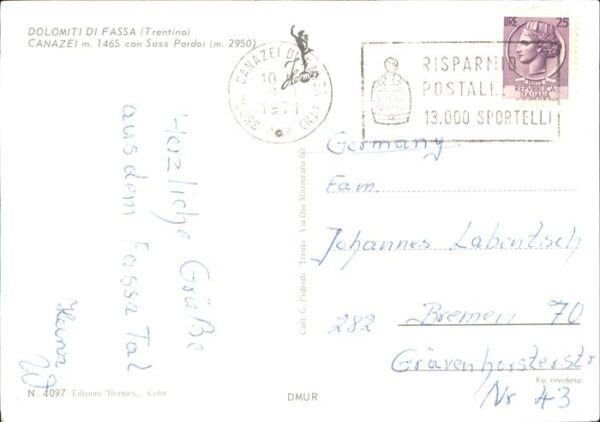 DOLOMITI DI FASSA (Trentino)
CANAZEI m. 1465 con Sass Pordoi (m. 2950)
CANAZEI DI
10
1971
(TN)
RISPARMIO
POSTALE
13.000 SPORTELLI
LIRE 25
REPVBBLICA
ITALIANA
Herzliche Grüße
aus dem Fassa Tal
Germany
Fam.
Johannes Labentsch
282 Bremen 70
Grävenhorsterstr
Nr 43
Cart. G. Pedrotti - Trento - Via Oss Mazzurana 60
Rip. Interdetta
N. 4097 Edizioni "Hermes" - Color
DMUR